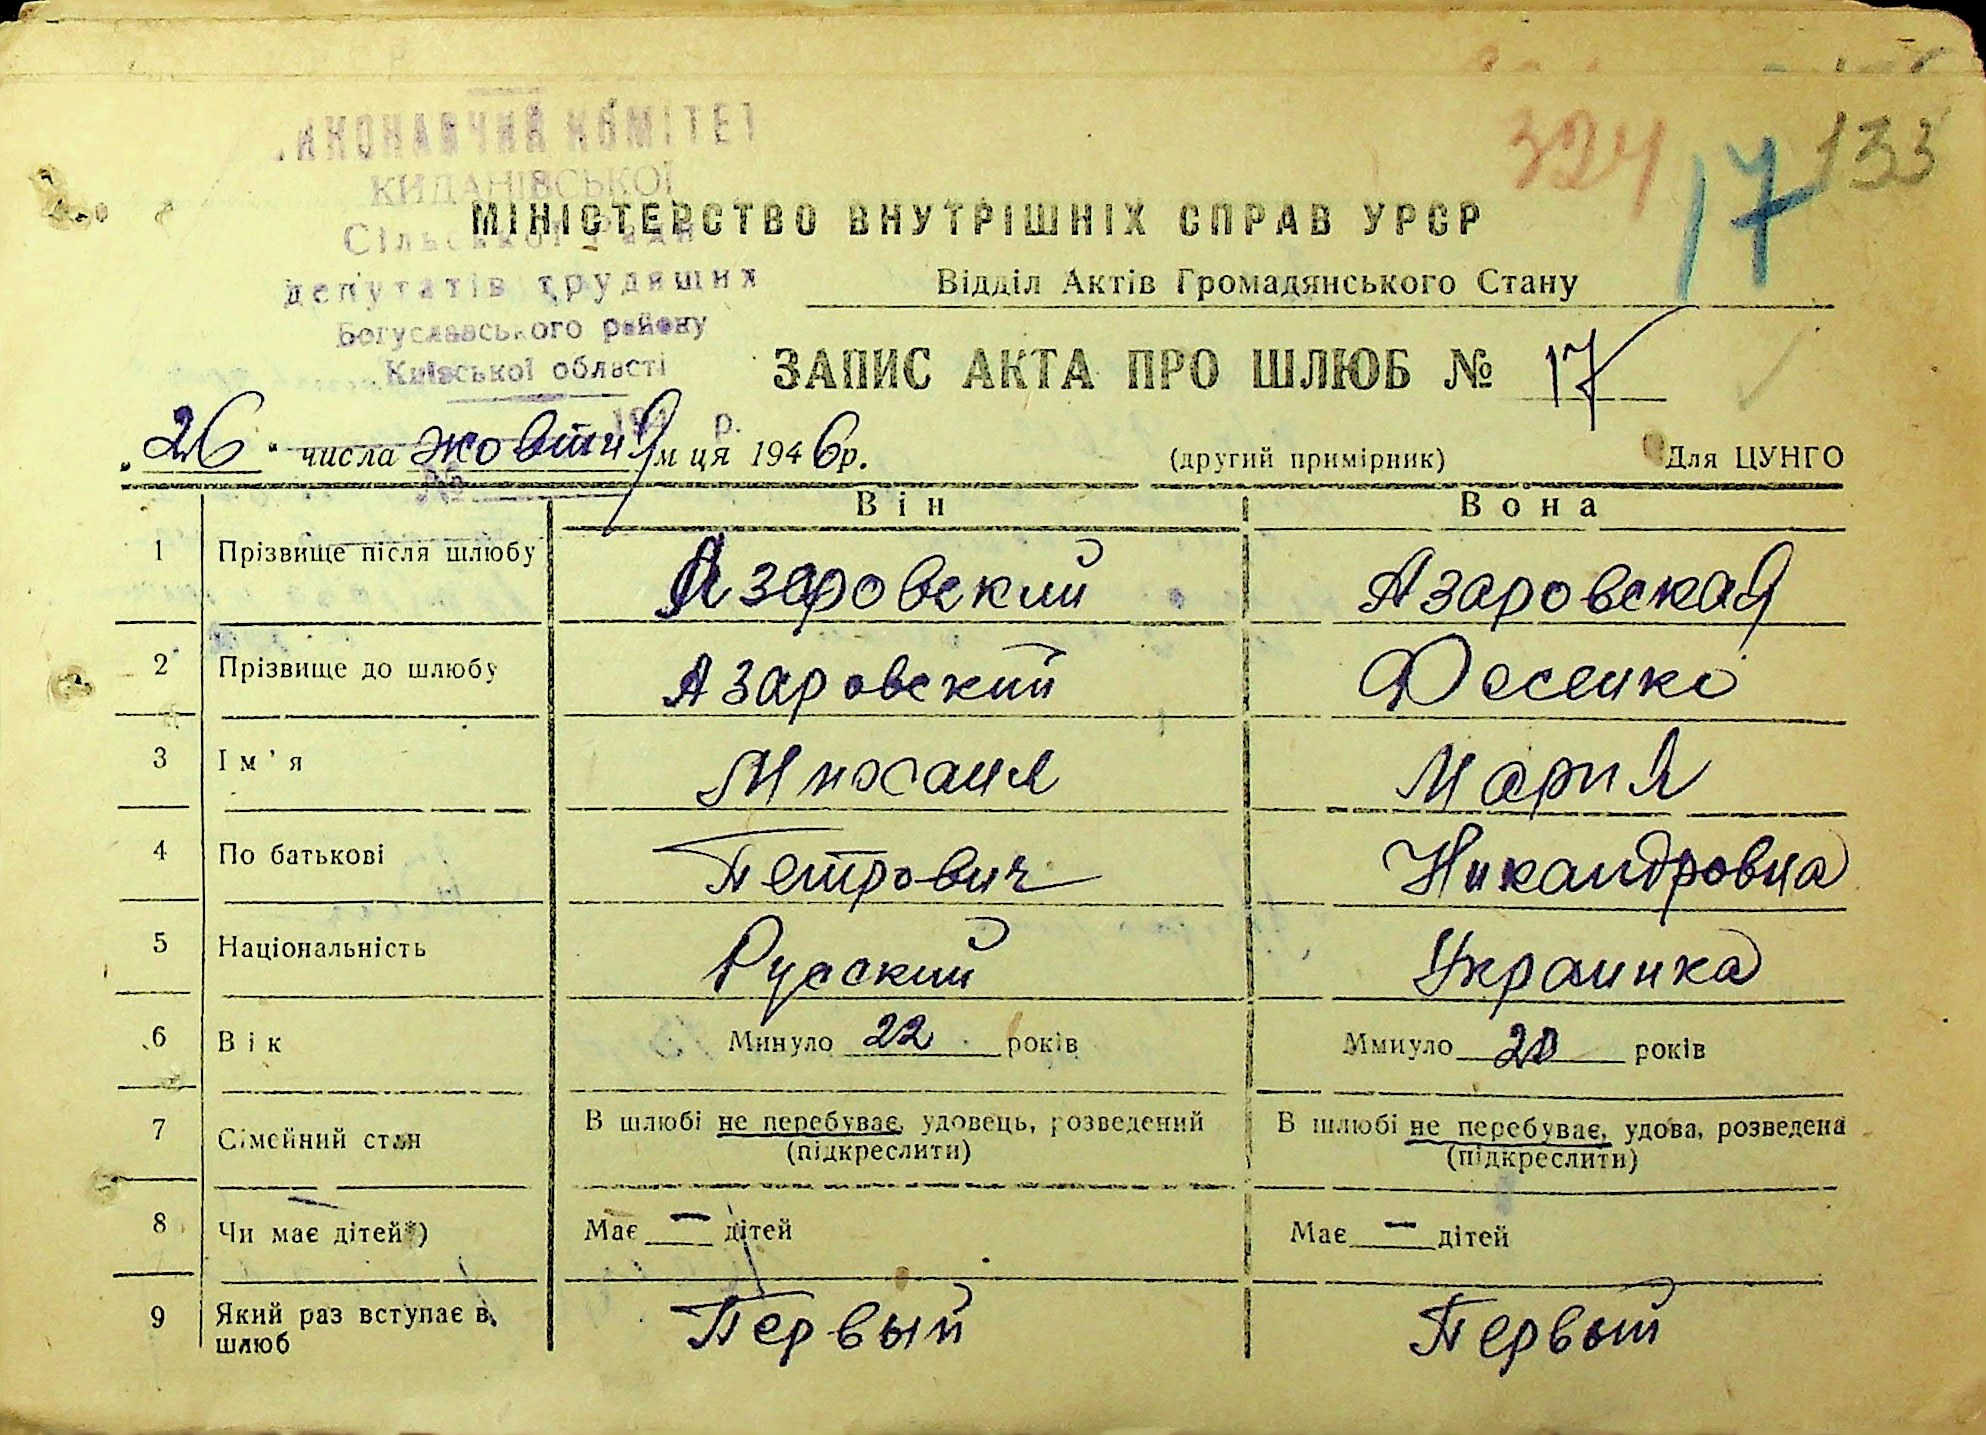 324 17 133
ВИКОНАВЧИЙ КОМІТЕТ
КИДАНІВСЬКОЇ
Сільської Ради
депутатів трудящих
Богуславського району
Київської області
194 р.
№
МІНІСТЕРСТВО ВНУТРІШНІХ СПРАВ УРСР
Відділ Актів Громадянського Стану
ЗАПИС АКТА ПРО ШЛЮБ № 17
„26“ числа жовтня м ця 1946р. (другий примірник) Для ЦУНГО
Він Вона
1 Прізвище після шлюбу Азаровский Азаровская
2 Прізвище до шлюбу Азаровский Фесенко
3 Ім'я Михаил Мария
4 По батькові Петрович Никандровна
5 Національність Русский Украинка
6 Вік Минуло 22 років Ммнуло 20 років
7 Сімейний стан В шлюбі не перебуває, удовець, розведений В шлюбі не перебуває, удова, розведена
(підкреслити) (підкреслити)
8 Чи має дітей*) Має — дітей Має — дітей
9 Який раз вступає в шлюб Первый Первый